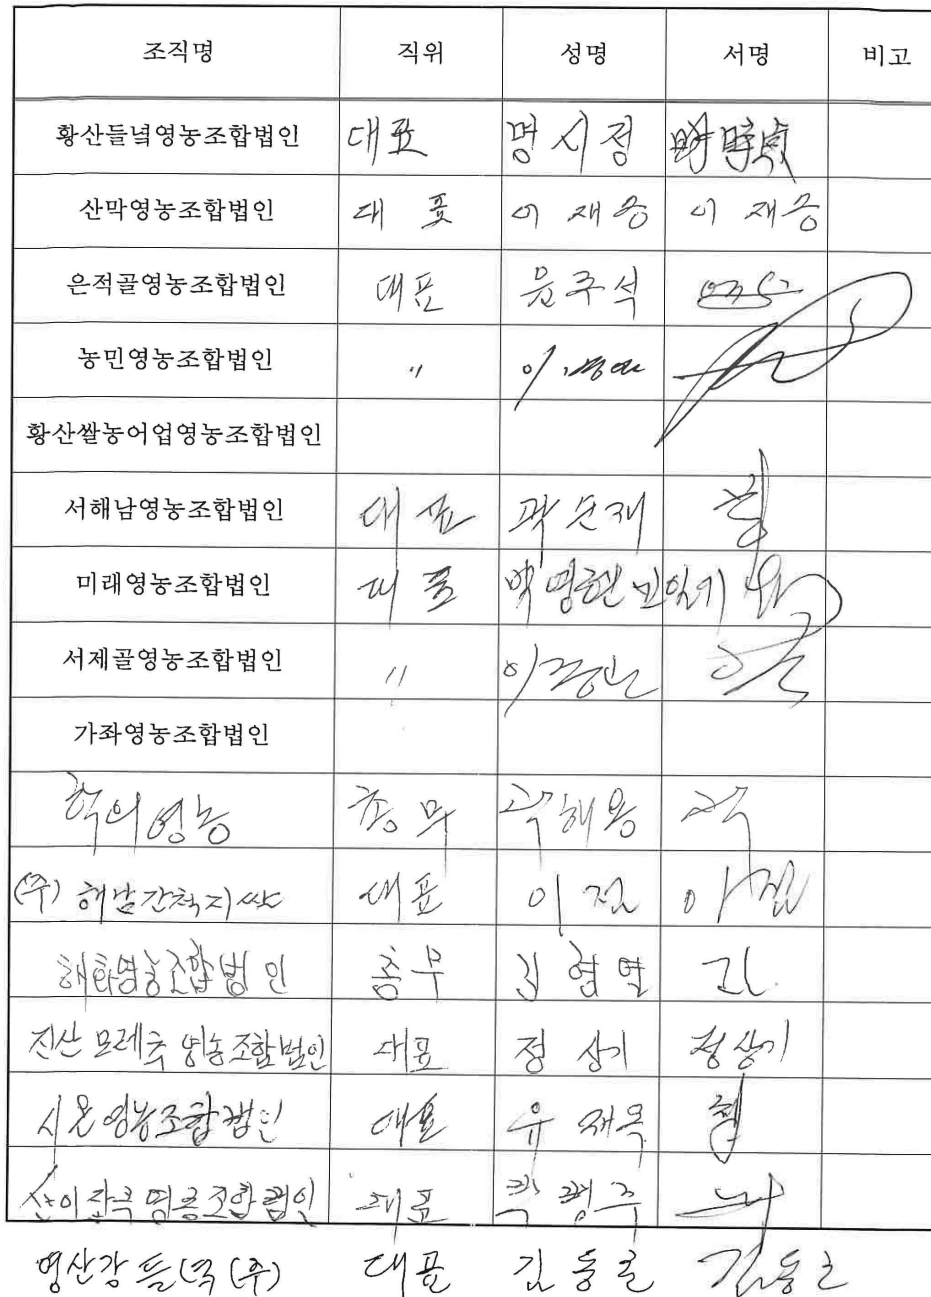 조직명 직위 성명 서명 비고
황산들녘영농조합법인 대표 명시정
산막영농조합법인 대표 이재승 이재승
은적골영농조합법인 대표 윤주석
농민영농조합법인 〃
황산쌀농어업영농조합법인
서해남영농조합법인 대표 곽순재
미래영농조합법인 대표 박영현
서제골영농조합법인 〃
가좌영농조합법인
학의영농 총무 곽해용 곽
(주)해남간척지쌀 대표 이 이
해화영농조합법인 총무 김
진산모레추영농조합법인 대표 정상기 정상기
시온영농조합법인 대표 유재목
산이 영농조합법인 대표 박병주
영산강들녘(주) 대표 김동